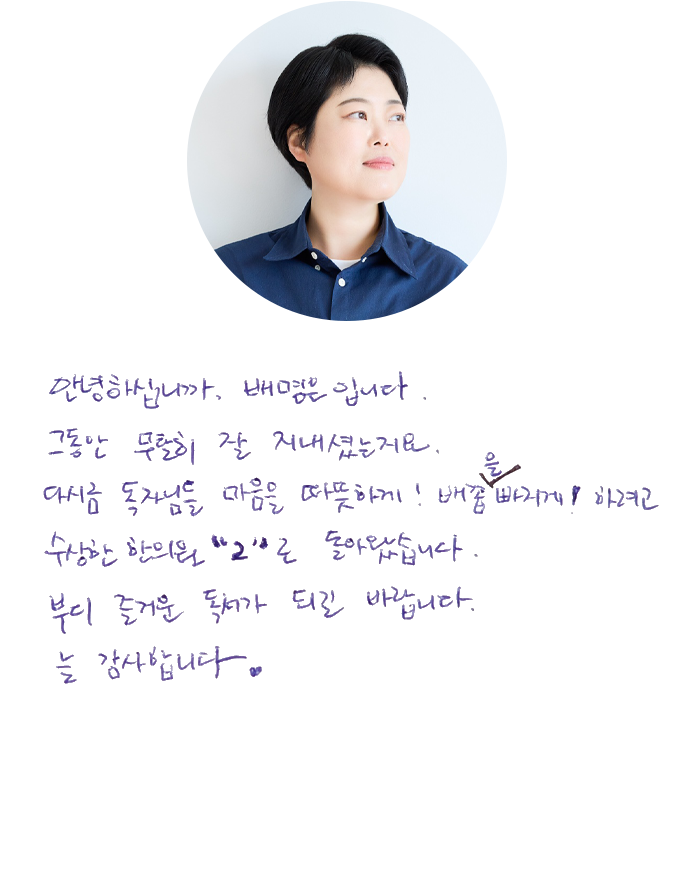 안녕하십니까, 배명은입니다.
그동안 무탈히 잘 지내셨는지요.
다시금 독자님들 마음을 따뜻하게! 배꼽을 빠지게! 하려고
수상한 한의원 "2"로 돌아왔습니다.
부디 즐거운 독서가 되길 바랍니다.
늘 감사합니다.